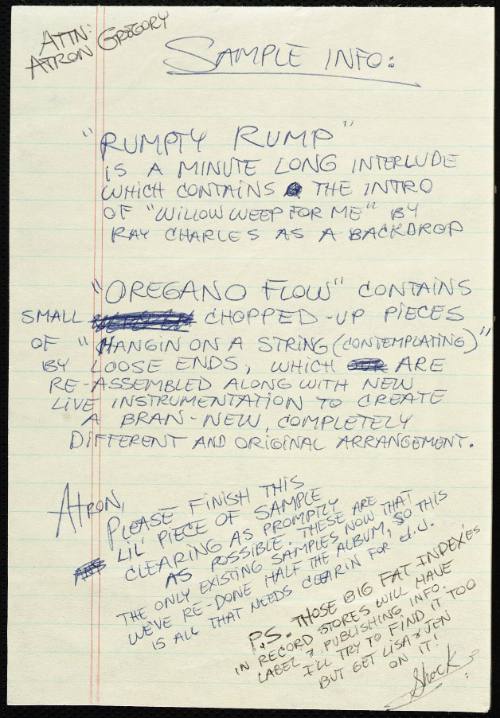 ATTN:
ATRON GREGORY
SAMPLE INFO:
"RUMPTY RUMP"
IS A MINUTE LONG INTERLUDE
WHICH CONTAINS THE INTRO
OF "WILLOW WEEP FOR ME" BY
RAY CHARLES AS A BACKDROP
"OREGANO FLOW" CONTAINS
SMALL CHOPPED-UP PIECES
OF "HANGIN ON A STRING (CONTEMPLATING)"
BY LOOSE ENDS, WHICH ARE
RE-ASSEMBLED ALONG WITH NEW
LIVE INSTRUMENTATION TO CREATE
A BRAN-NEW, COMPLETELY
DIFFERENT AND ORIGINAL ARRANGEMENT.
ATRON,
PLEASE FINISH THIS
LIL' PIECE OF SAMPLE
CLEARING AS PROMPTLY
AS POSSIBLE. THESE ARE
THE ONLY EXISTING SAMPLES NOW THAT
WE'VE RE-DONE HALF THE ALBUM, SO THIS
IS ALL THAT NEEDS CLEARIN FOR d.U.
P.S. THOSE BIG FAT INDEXES
IN RECORD STORES WILL HAVE
LABEL & PUBLISHING INFO.
I'LL TRY TO FIND IT TOO
BUT GET LISA & JEN
ON IT!
Shock